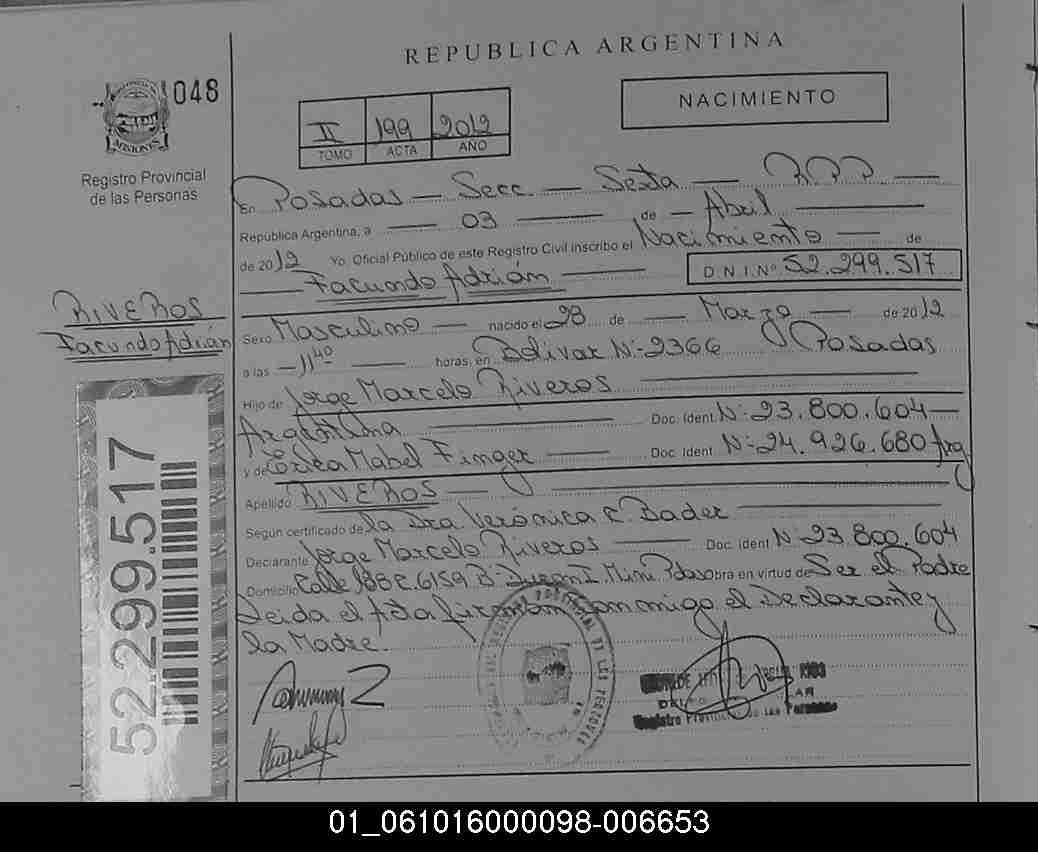 REPUBLICA ARGENTINA
048
MISIONES
Registro Provincial
de las Personas
II 199 2012
TOMO ACTA AÑO
NACIMIENTO
En Posadas — Secc — Sexta —
República Argentina, a — 03 — de — Abril —
de 2012 Yo, Oficial Público de este Registro Civil inscribo el Nacimiento — de
— Facundo Adrián — D.N.I.Nº 52.299.517
RIVEROS
Facundo Adrián
Sexo Masculino — nacido el 28 de — Marzo — de 2012
a las — 11⁴⁰ — horas, en Bolivar Nº 2366 Posadas
Hijo de Jorge Marcelo Riveros —
Argentina — Doc. Ident. Nº 23.800.604 —
y de Erica Mabel Finger — Doc. Ident. Nº 24.926.680 Arg
Apellido RIVEROS —
Según certificado de la Dra. Verónica C. Bader —
Declarante Jorge Marcelo Riveros — Doc. Ident Nº 23.800.604
Domicilio Calle 188 C. 6159 Bº obra en virtud de Ser el Padre
Leida el Acta firman conmigo el Declarante y
la Madre.
Registro Provincial de las Personas
52.299.517
01_061016000098-006653